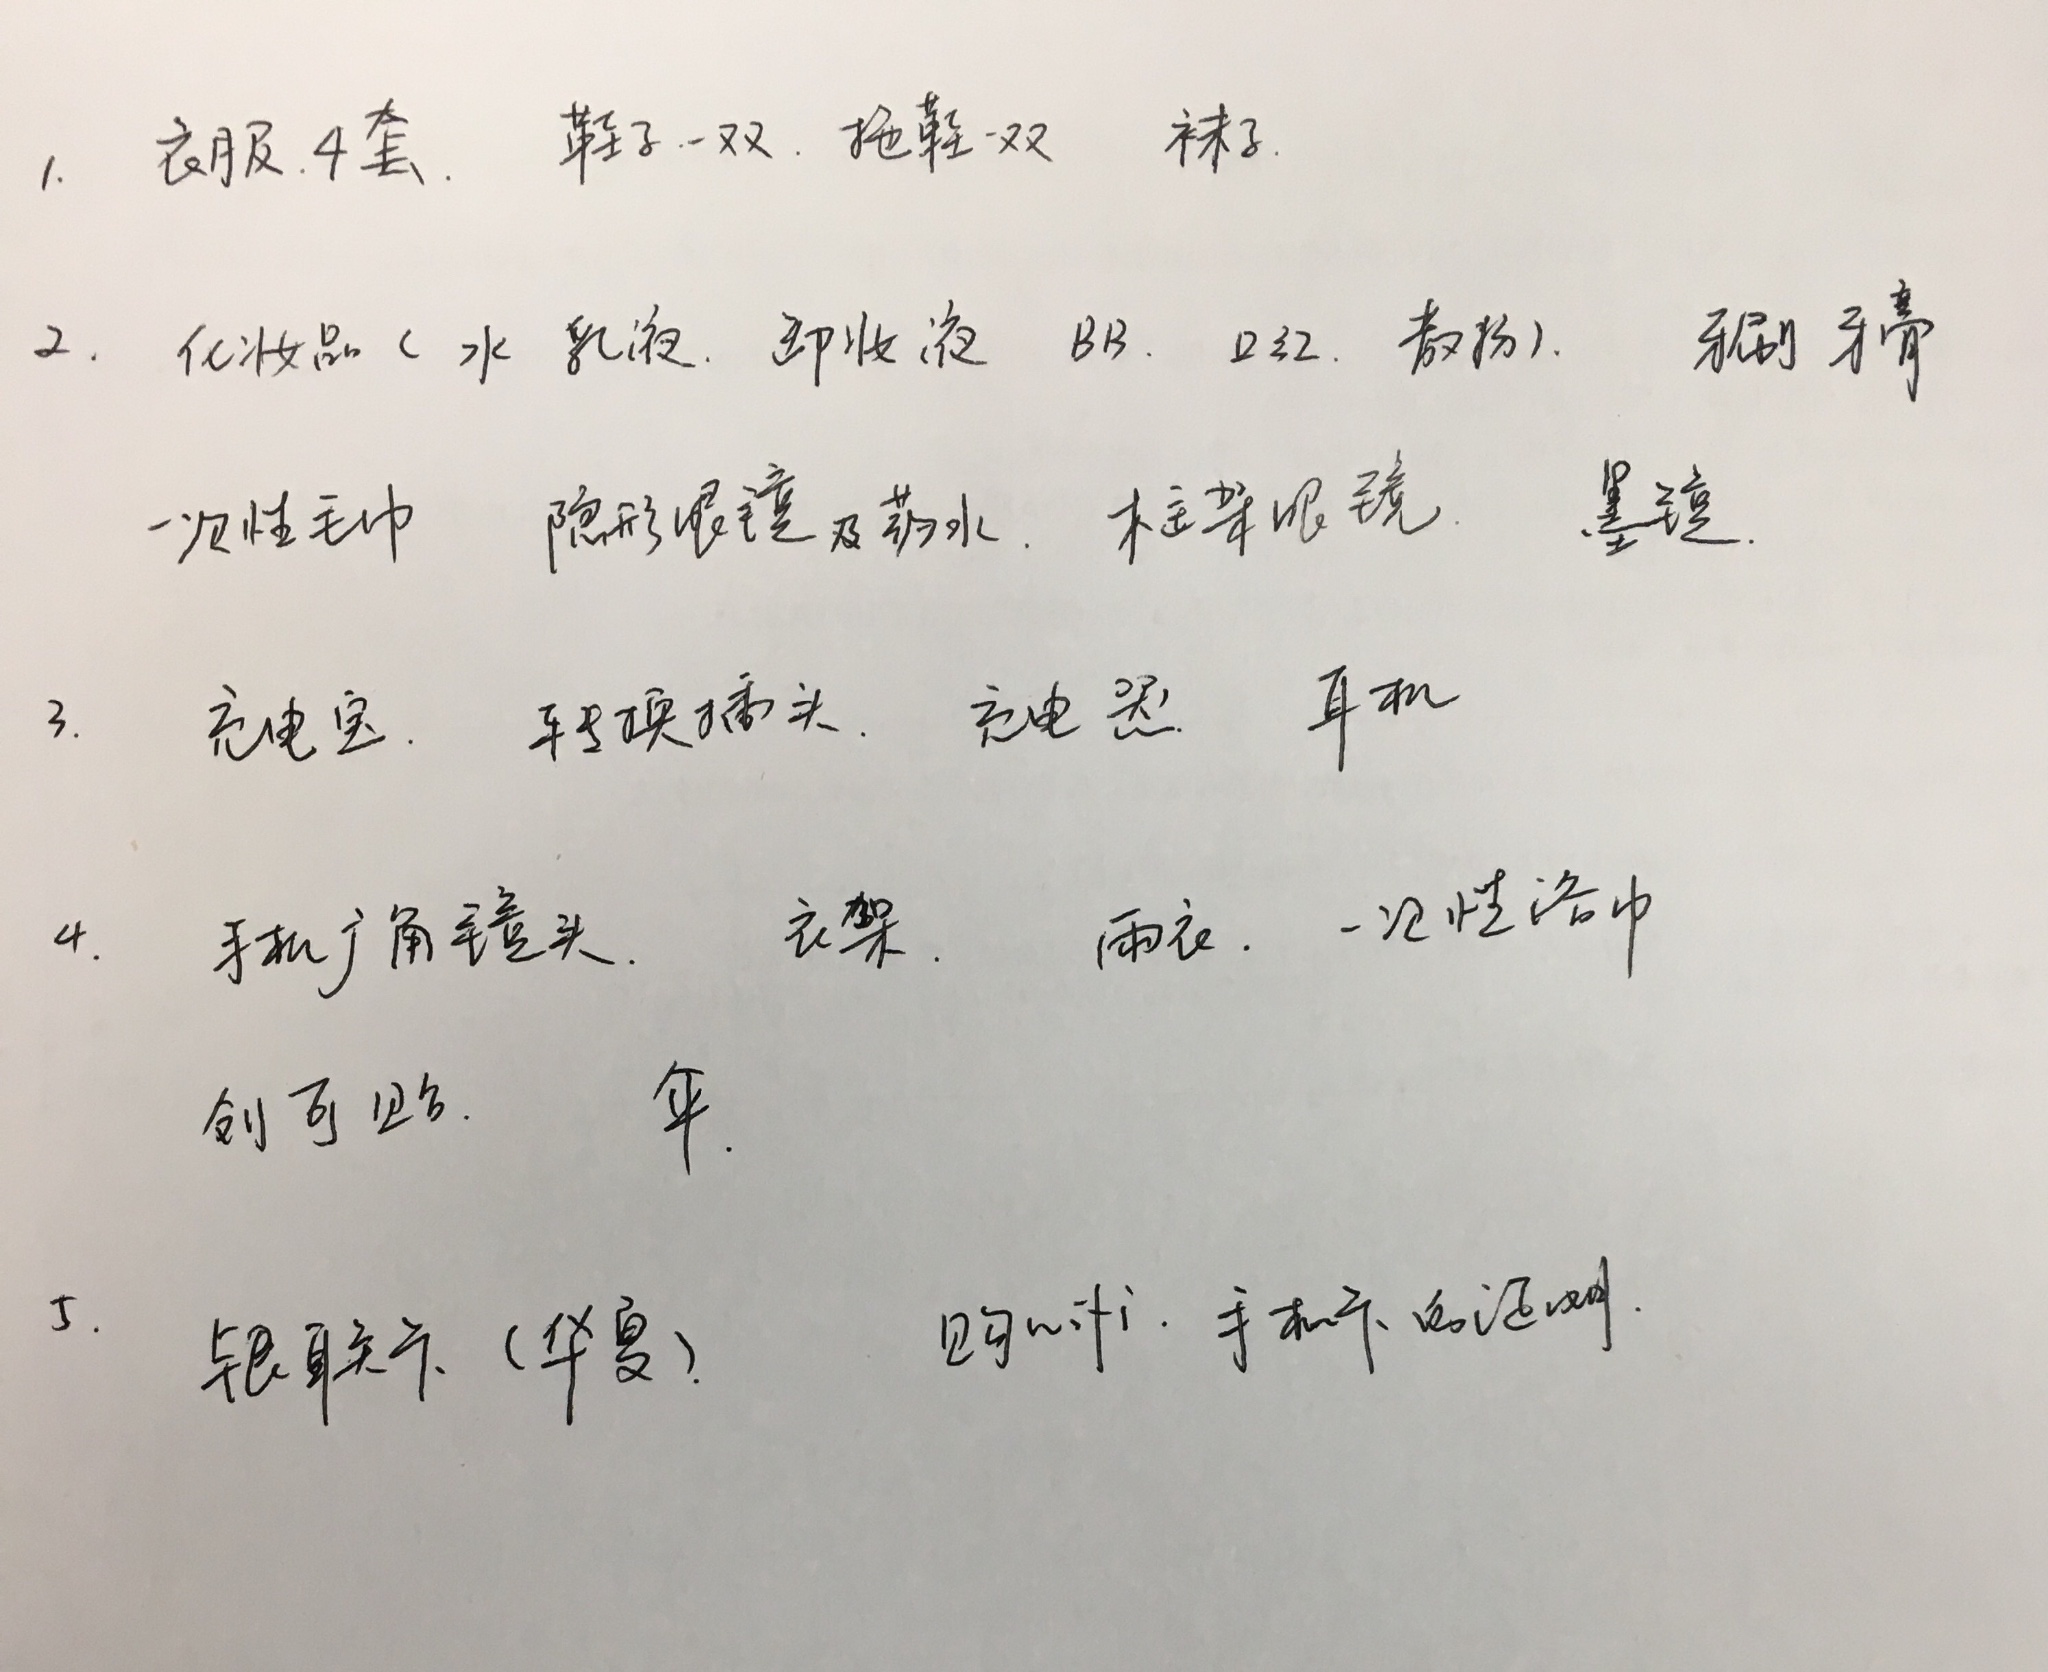 1. 衣服.4套. 鞋子.一双. 拖鞋一双 袜子.
2. 化妆品(水 乳液. 卸妆液 BB. 口红. 散粉). 牙刷 牙膏
一次性毛巾 隐形眼镜及药水. 框架眼镜. 墨镜.
3. 充电宝. 转换插头. 充电器. 耳机
4. 手机广角镜头. 衣架. 雨衣. 一次性浴巾
创可贴. 伞.
5. 银联卡(华夏) 购wifi. 手机卡的证明.